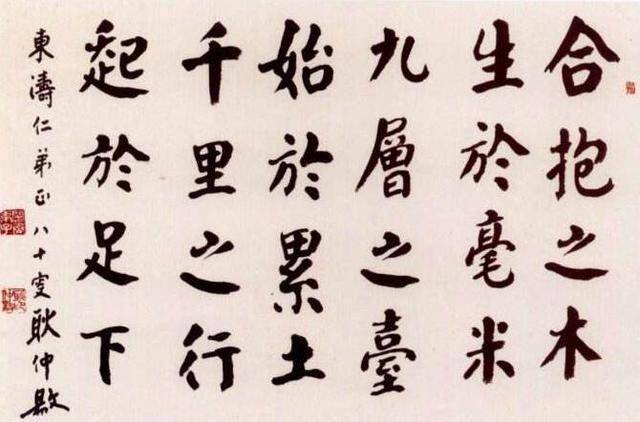 合抱之木
生於毫米
九層之臺
始於累土
千里之行
起於足下
東濤仁弟正 八十叟耿仲敭